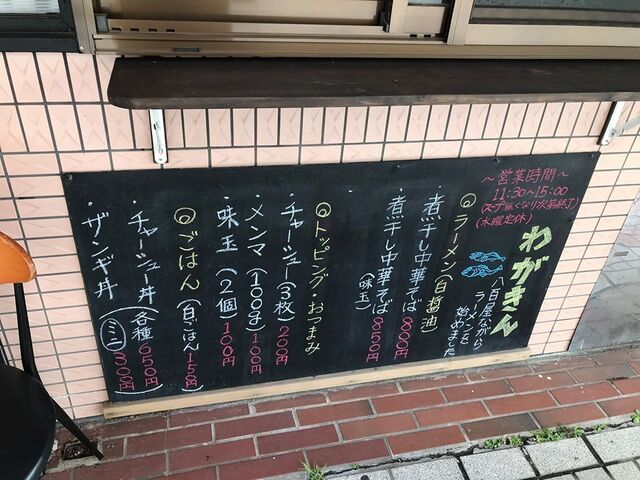 ～営業時間～
11:30〜15:00
(スープ無くなり次第終了)
(水曜定休)
わがきん
八百屋ながら
ラーメンを
始めました
◎ラーメン(白醤油)
・煮干し中華そば 800円
・煮干し中華そば 850円
(味玉)
◎トッピング・おつまみ
・チャーシュー(3枚) 200円
・メンマ(100g) 100円
・味玉(2個) 100円
◎ごはん(白ごはん 150円)
・チャーシュー丼(各種 650円
・ザンギ丼(ミニ) 300円